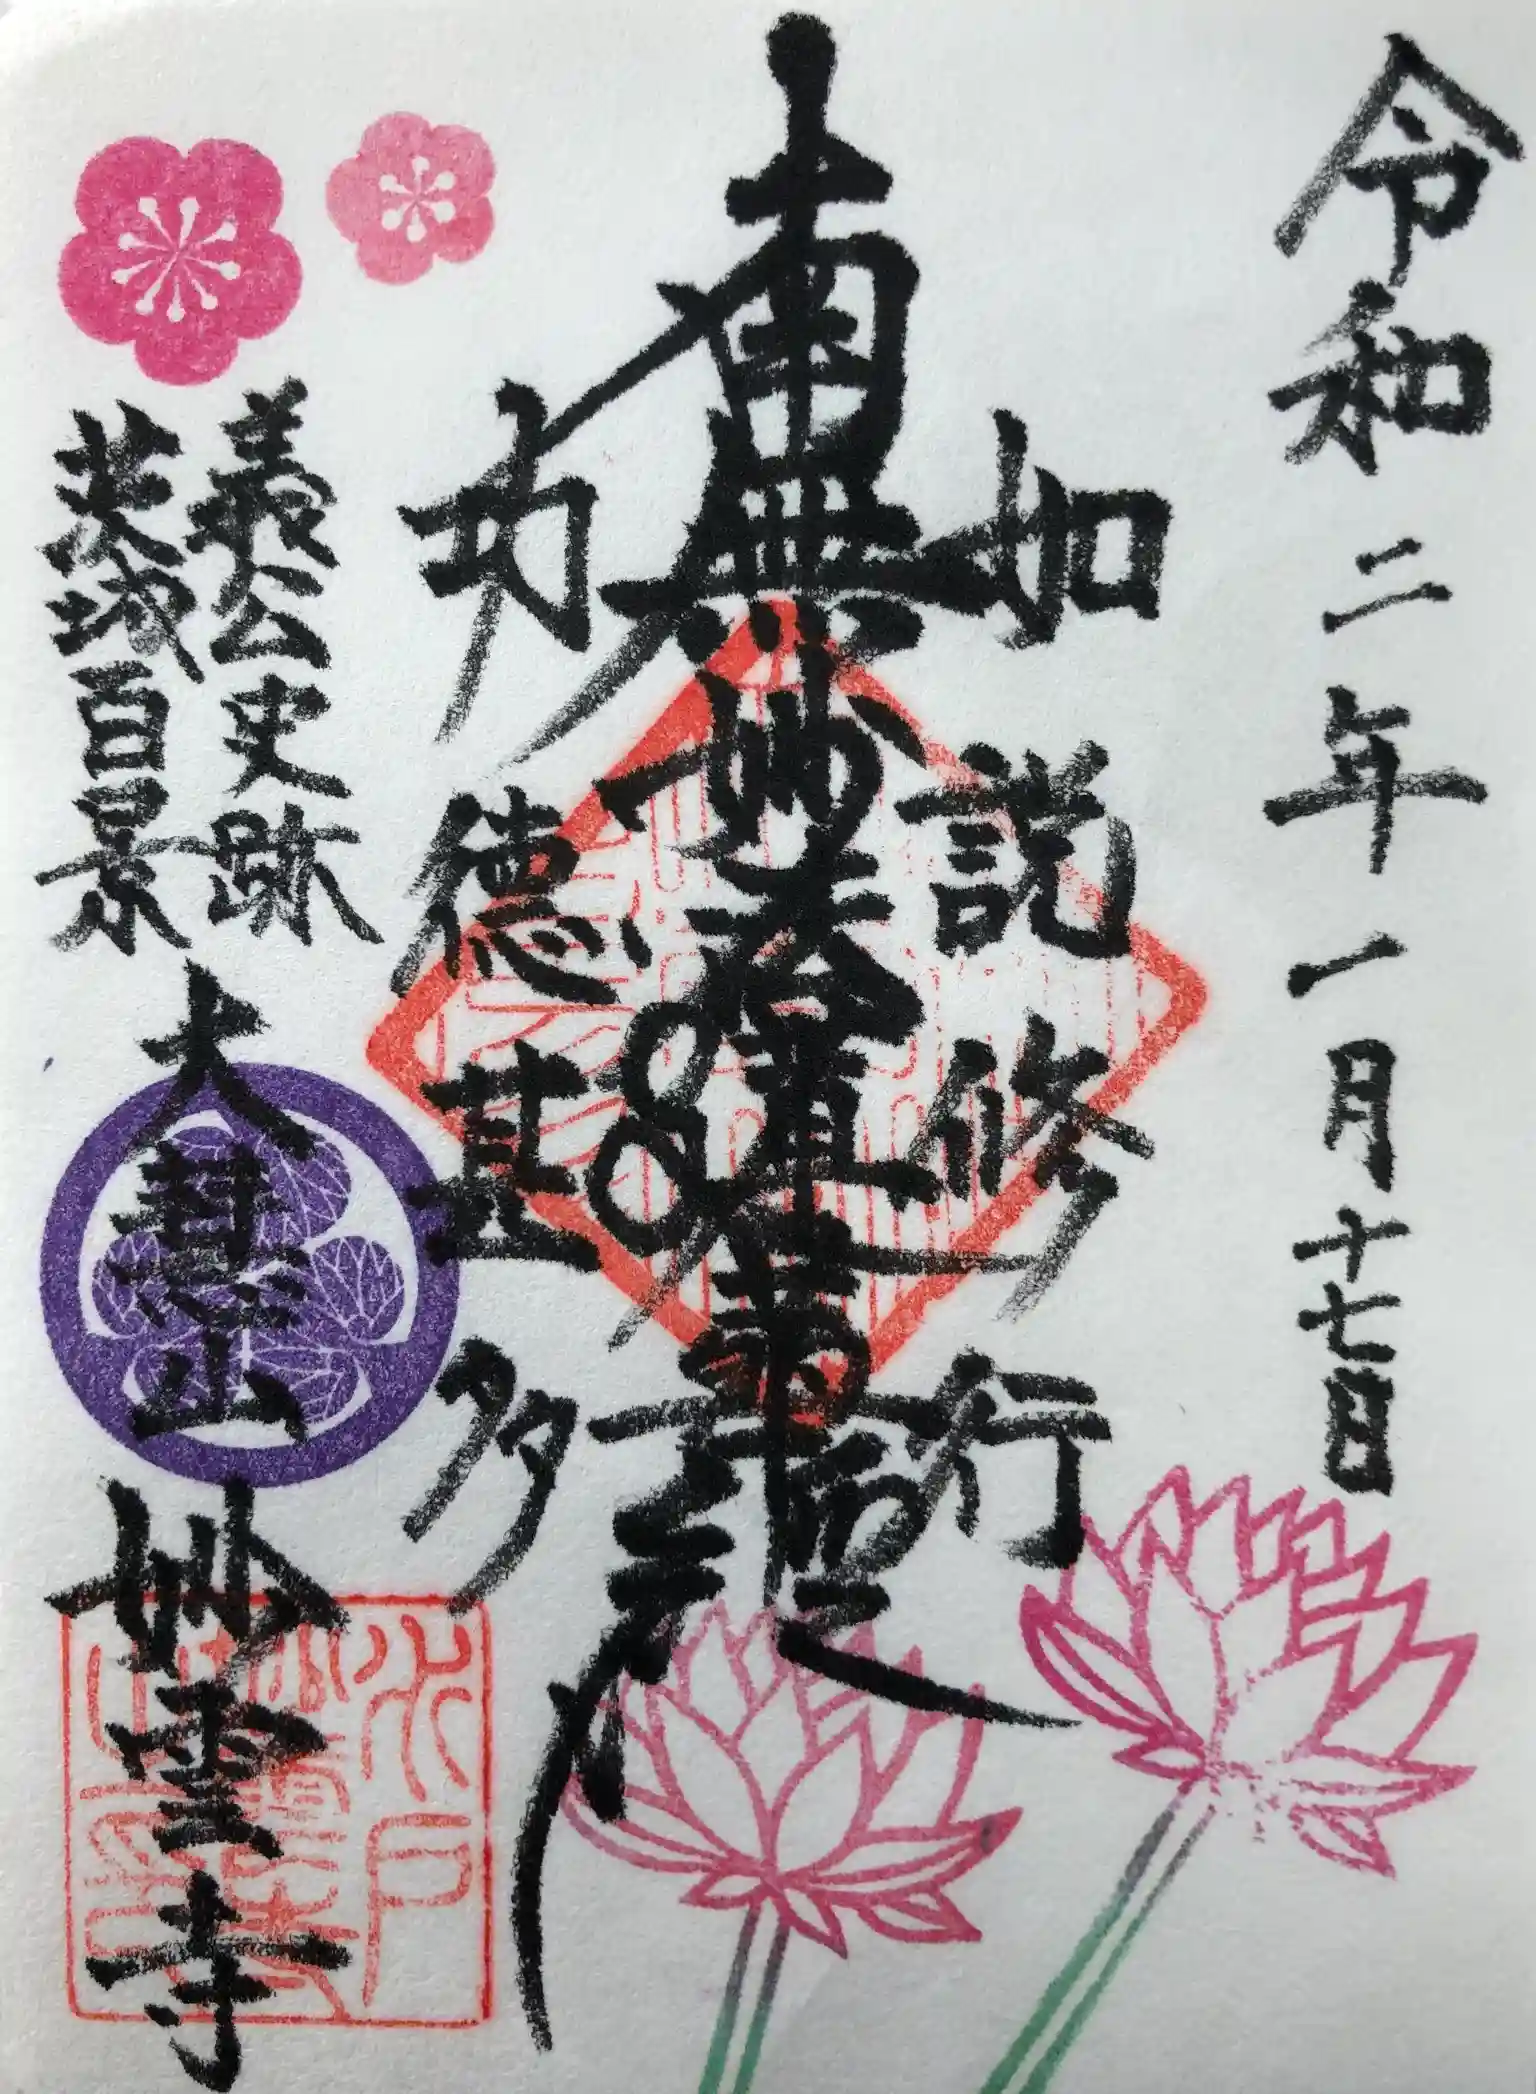 令和二年一月十七日
如説修行
南無妙法蓮華経
功徳甚多
義公史跡
茨城百景
大慧山
妙雲寺
水戸